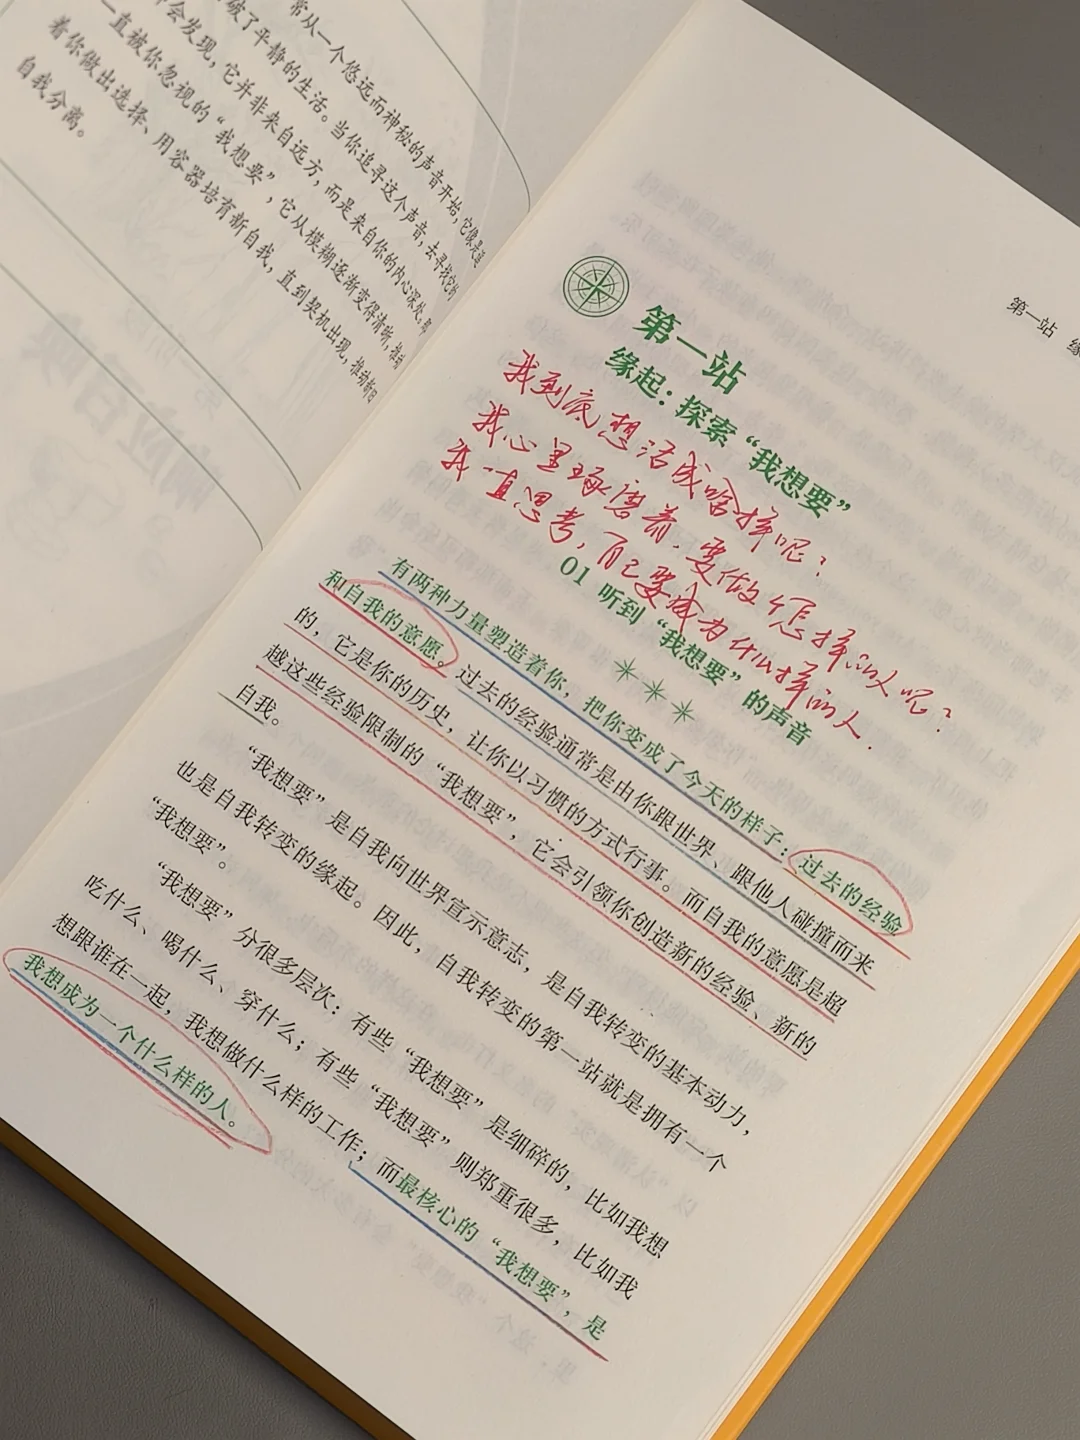 常从一个悠远而神秘的声音开始，它像是
破了平静的生活。当你追寻这个声音，去寻找它的
会发现，它并非来自远方，而是来自你的内心深处，
一直被你忽视的“我想要”，它从模糊逐渐变得清晰，推动
着你做出选择、用容器培育新自我，直到契机出现，推动新旧
自我分离。
第一站 缘
第一站
缘起：探索“我想要”
我到底想活成啥样呢？
我心里琢磨着，要做个怎样的人呢？
我一直思考，自己要成为什么样的人．
01 听到“我想要”的声音
有两种力量塑造着你，把你变成了今天的样子：过去的经验
和自我的意愿。过去的经验通常是由你跟世界、跟他人碰撞而来
的，它是你的历史，让你以习惯的方式行事。而自我的意愿是超
越这些经验限制的“我想要”，它会引领你创造新的经验、新的
自我。
“我想要”是自我向世界宣示意志，是自我转变的基本动力，
也是自我转变的缘起。因此，自我转变的第一站就是拥有一个
“我想要”。
“我想要”分很多层次：有些“我想要”是细碎的，比如我想
吃什么、喝什么、穿什么；有些“我想要”则郑重很多，比如我
想跟谁在一起，我想做什么样的工作；而最核心的“我想要”，是
我想成为一个什么样的人。